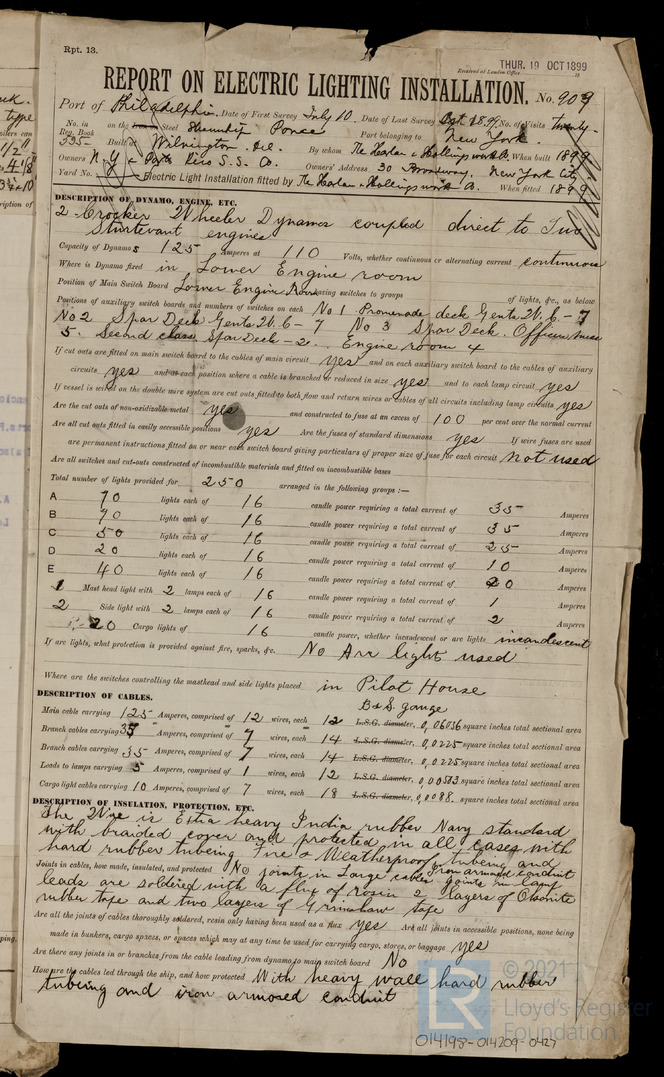 Rpt. 13.
THUR. 19 OCT 1899
Received at London Office
REPORT ON ELECTRIC LIGHTING INSTALLATION. No. 909
Port of Philadelphia Date of First Survey July 10 Date of Last Survey Sept 1899 No. of Visits Twenty-
No. in Reg. Book on the Iron Steel Steamship Ponce Port belonging to New York
535 Built at Wilmington Del. By whom The Harlan & Hollingsworth Co. When built 1899
Owners N.Y. & Porto Rico S.S. Co. Owners' Address 30 Broadway, New York City
Yard No. Electric Light Installation fitted by The Harlan & Hollingsworth Co. When fitted 1899
DESCRIPTION OF DYNAMO, ENGINE, ETC.
2 - Crocker Wheeler Dynamos coupled direct to Two
Sturtevant engines
Capacity of Dynamos 125 Amperes at 110 Volts, whether continuous or alternating current continuous
Where is Dynamo fixed in Lower Engine room
Position of Main Switch Board Lower Engine Room having switches to groups of lights, &c., as below
Positions of auxiliary switch boards and numbers of switches on each No 1 Promenade deck Gents W.C - 7
No 2 Spar Deck Gents W.C - 7 No 3 Spar Deck. Officers mess
5. Second class Spar Deck - 2. Engine room 4
If cut outs are fitted on main switch board to the cables of main circuit yes and on each auxiliary switch board to the cables of auxiliary
circuits yes and at each position where a cable is branched or reduced in size yes and to each lamp circuit yes
If vessel is wired on the double wire system are cut outs fitted to both flow and return wires or cables of all circuits including lamp circuits yes
Are the cut outs of non-oxidizable metal yes and constructed to fuse at an excess of 100 per cent over the normal current
Are all cut outs fitted in easily accessible positions yes Are the fuses of standard dimensions yes If wire fuses are used
are permanent instructions fitted on or near each switch board giving particulars of proper size of fuse for each circuit not used
Are all switches and cut-outs constructed of incombustible materials and fitted on incombustible bases
Total number of lights provided for 250 arranged in the following groups :—
A 70 lights each of 16 candle power requiring a total current of 35 Amperes
B 70 lights each of 16 candle power requiring a total current of 35 Amperes
C 50 lights each of 16 candle power requiring a total current of 25 Amperes
D 20 lights each of 16 candle power requiring a total current of 10 Amperes
E 40 lights each of 16 candle power requiring a total current of 20 Amperes
1 Mast head light with 2 lamps each of 16 candle power requiring a total current of 1 Amperes
2 Side light with 2 lamps each of 16 candle power requiring a total current of 2 Amperes
20 Cargo lights of 16 candle power, whether incandescent or arc lights incandescent
If arc lights, what protection is provided against fire, sparks, &c. No Arc light used
Where are the switches controlling the masthead and side lights placed in Pilot House
DESCRIPTION OF CABLES. B & S. gauge
Main cable carrying 125 Amperes, comprised of 12 wires, each 12 L.S.G. diameter, 0,06036 square inches total sectional area
Branch cables carrying 35 Amperes, comprised of 7 wires, each 14 L.S.G. diameter, 0,0225 square inches total sectional area
Branch cables carrying 35 Amperes, comprised of 7 wires, each 14 L.S.G. diameter, 0,0225 square inches total sectional area
Leads to lamps carrying 5 Amperes, comprised of 1 wires, each 12 L.S.G. diameter, 0,00503 square inches total sectional area
Cargo light cables carrying 10 Amperes, comprised of 7 wires, each 18 L.S.G. diameter, 0,0088 square inches total sectional area
DESCRIPTION OF INSULATION, PROTECTION, ETC.
The Wire is Extra heavy India rubber Navy standard
with braided cover and protected in all cases with
hard rubber tubeing Fire & Weatherproof tubeing and
Iron armored conduit
Joints in cables, how made, insulated, and protected No joints in Large cables joints in lamp
leads are soldered with a flux of Rosin 2 layers of Okonite
rubber tape and two layers of Grimshaw tape
Are all the joints of cables thoroughly soldered, resin only having been used as a flux yes Are all joints in accessible positions, none being
made in bunkers, cargo spaces, or spaces which may at any time be used for carrying cargo, stores, or baggage yes
Are there any joints in or branches from the cable leading from dynamo to main switch board No
How are the cables led through the ship, and how protected With heavy wall hard rubber
tubeing and iron armored conduit
© 2021
LR
Lloyd's Register
Foundation
014198-014209-0427